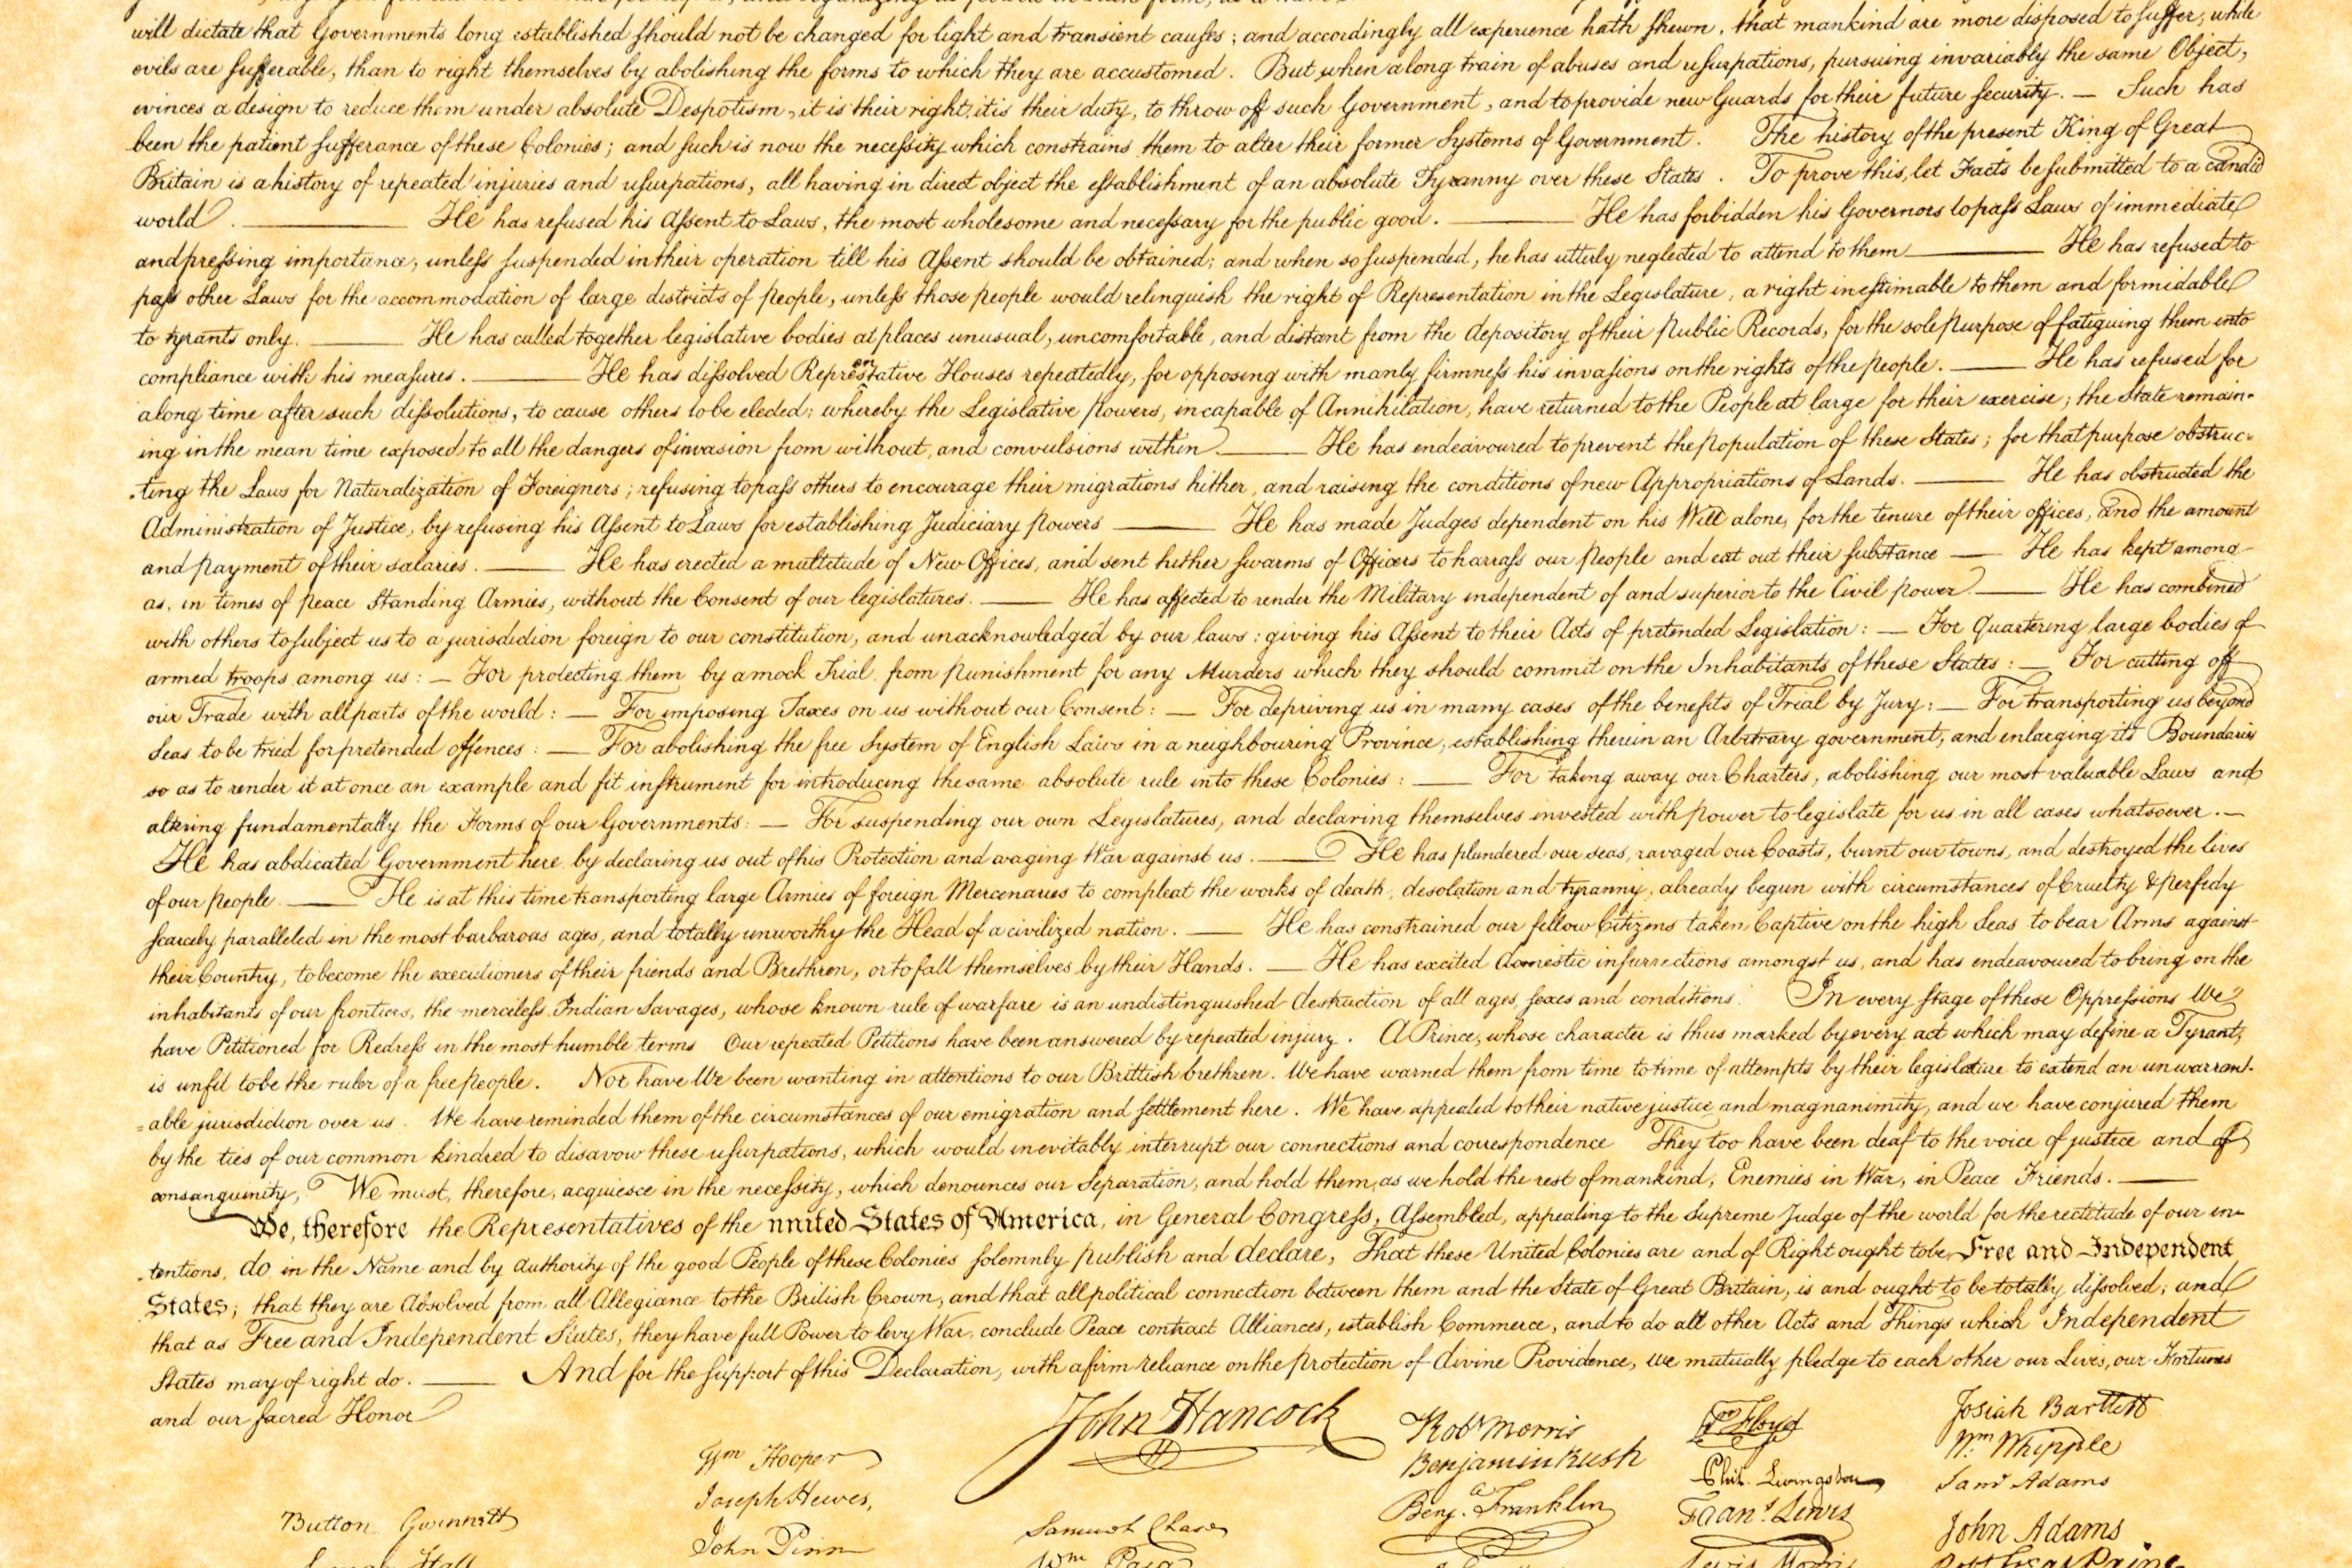 will dictate that Governments long established should not be changed for light and transient causes; and accordingly all experience hath shewn, that mankind are more disposed to suffer, while
evils are sufferable, than to right themselves by abolishing the forms to which they are accustomed. But when a long train of abuses and usurpations, pursuing invariably the same Object,
evinces a design to reduce them under absolute Despotism, it is their right, it is their duty, to throw off such Government, and to provide new Guards for their future security. — Such has
been the patient sufferance of these Colonies; and such is now the necessity which constrains them to alter their former Systems of Government. The history of the present King of Great
Britain is a history of repeated injuries and usurpations, all having in direct object the establishment of an absolute Tyranny over these States. To prove this, let Facts be submitted to a candid
world. — He has refused his Assent to Laws, the most wholesome and necessary for the public good. — He has forbidden his Governors to pass Laws of immediate
and pressing importance, unless suspended in their operation till his Assent should be obtained; and when so suspended, he has utterly neglected to attend to them — He has refused to
pass other Laws for the accommodation of large districts of people, unless those people would relinquish the right of Representation in the Legislature, a right inestimable to them and formidable
to tyrants only. — He has called together legislative bodies at places unusual, uncomfortable, and distant from the depository of their Public Records, for the sole purpose of fatiguing them into
compliance with his measures. — He has dissolved Representative Houses repeatedly, for opposing with manly firmness his invasions on the rights of the people. — He has refused for
a long time after such dissolutions, to cause others to be elected; whereby the Legislative Powers, incapable of Annihilation, have returned to the People at large for their exercise; the State remain-
ing in the mean time exposed to all the dangers of invasion from without, and convulsions within. — He has endeavoured to prevent the population of these States; for that purpose obstruc-
-ting the Laws for Naturalization of Foreigners; refusing to pass others to encourage their migrations hither, and raising the conditions of new Appropriations of Lands. — He has obstructed the
Administration of Justice, by refusing his Assent to Laws for establishing Judiciary Powers — He has made Judges dependent on his Will alone, for the tenure of their offices, and the amount
and payment of their salaries. — He has erected a multitude of New Offices, and sent hither swarms of Officers to harrass our People and eat out their substance — He has kept among
us, in times of peace Standing Armies, without the Consent of our legislatures. — He has affected to render the Military independent of and superior to the Civil power. — He has combined
with others to subject us to a jurisdiction foreign to our constitution, and unacknowledged by our laws; giving his Assent to their Acts of pretended Legislation: — For Quartering large bodies of
armed troops among us: — For protecting them by a mock Trial from punishment for any Murders which they should commit on the Inhabitants of these States: — For cutting off
our Trade with all parts of the world: — For imposing Taxes on us without our Consent: — For depriving us in many cases of the benefits of Trial by Jury: — For transporting us beyond
Seas to be tried for pretended offences: — For abolishing the free System of English Laws in a neighbouring Province, establishing therein an Arbitrary government, and enlarging its Boundaries
so as to render it at once an example and fit instrument for introducing the same absolute rule into these Colonies: — For taking away our Charters, abolishing our most valuable Laws and
altering fundamentally the Forms of our Governments: — For suspending our own Legislatures, and declaring themselves invested with power to legislate for us in all cases whatsoever. —
He has abdicated Government here by declaring us out of his Protection and waging War against us. — He has plundered our seas, ravaged our Coasts, burnt our towns, and destroyed the lives
of our people. — He is at this time transporting large Armies of foreign Mercenaries to compleat the works of death, desolation and tyranny, already begun with circumstances of Cruelty & perfidy
scarcely paralleled in the most barbarous ages, and totally unworthy the Head of a civilized nation. — He has constrained our fellow Citizens taken Captive on the high Seas to bear Arms against
their Country, to become the executioners of their friends and Brethren, or to fall themselves by their Hands. — He has excited domestic insurrections amongst us, and has endeavoured to bring on the
inhabitants of our frontiers, the merciless Indian Savages, whose known rule of warfare is an undistinguished destruction of all ages, sexes and conditions. In every stage of these Oppressions We
have Petitioned for Redress in the most humble terms Our repeated Petitions have been answered by repeated injury. A Prince, whose character is thus marked by every act which may define a Tyrant,
is unfit to be the ruler of a free people. Nor have We been wanting in attentions to our Brittish brethren. We have warned them from time to time of attempts by their legislature to extend an unwarrant-
=able jurisdiction over us. We have reminded them of the circumstances of our emigration and settlement here. We have appealed to their native justice and magnanimity, and we have conjured them
by the ties of our common kindred to disavow these usurpations, which would inevitably interrupt our connections and correspondence They too have been deaf to the voice of justice and of
consanguinity, We must, therefore, acquiesce in the necessity, which denounces our Separation, and hold them, as we hold the rest of mankind, Enemies in War, in Peace Friends. —
We, therefore the Representatives of the united States of America, in General Congress, Assembled, appealing to the Supreme Judge of the world for the rectitude of our in-
-tentions, do, in the Name and by authority of the good People of these Colonies solemnly publish and declare, That these United Colonies are and of Right ought to be Free and Independent
States; that they are Absolved from all Allegiance to the British Crown, and that all political connection between them and the State of Great Britain, is and ought to be totally dissolved; and
that as Free and Independent States, they have full Power to levy War, conclude Peace contract Alliances, establish Commerce, and to do all other Acts and Things which Independent
States may of right do. — And for the support of this Declaration, with a firm reliance on the protection of divine Providence, we mutually pledge to each other our Lives, our Fortunes
and our sacred Honor
Button Gwinnett
Wm Hooper
Joseph Hewes,
John Penn
John Hancock
Samuel Chase
Wm Paca
Robt Morris
Benjamin Rush
Benja. Franklin
Wm Floyd
Phil. Livingston
Frans. Lewis
Lewis Morris
Josiah Bartlett
Wm. Whipple
Saml Adams
John Adams
Robt Treat Paine